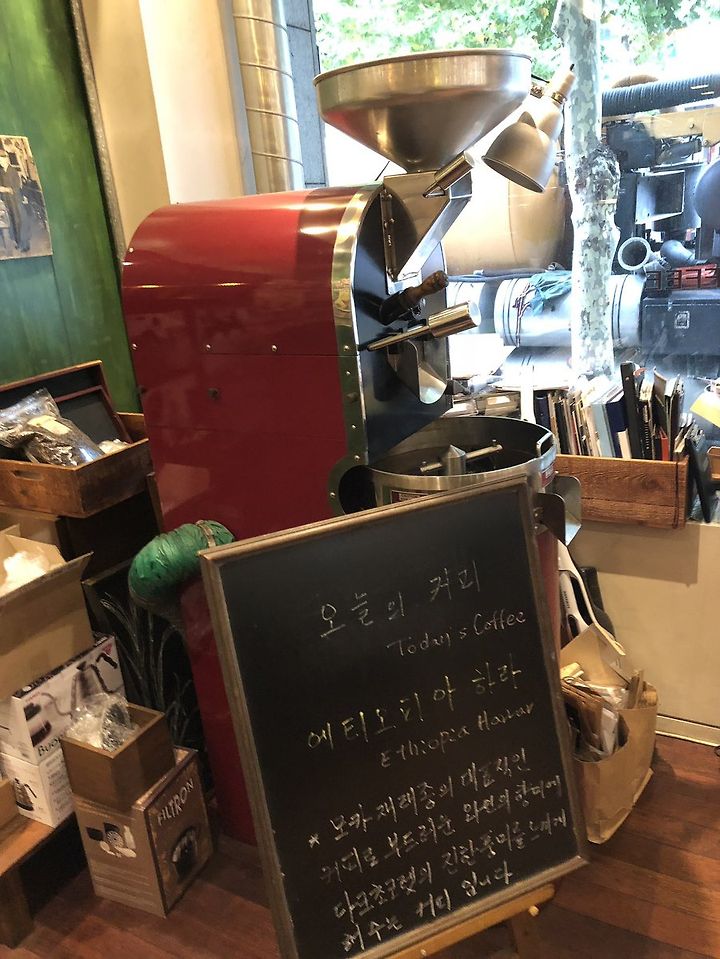 오늘의 커피
Today's Coffee
에티오피아 하라
Ethiopia Harrar
* 모카 재래종의 대표적인
커피로 부드러운 와인의 향미에
다크초코렛의 진한 풍미를 느끼게
해주는 커피 입니다
FILTRON